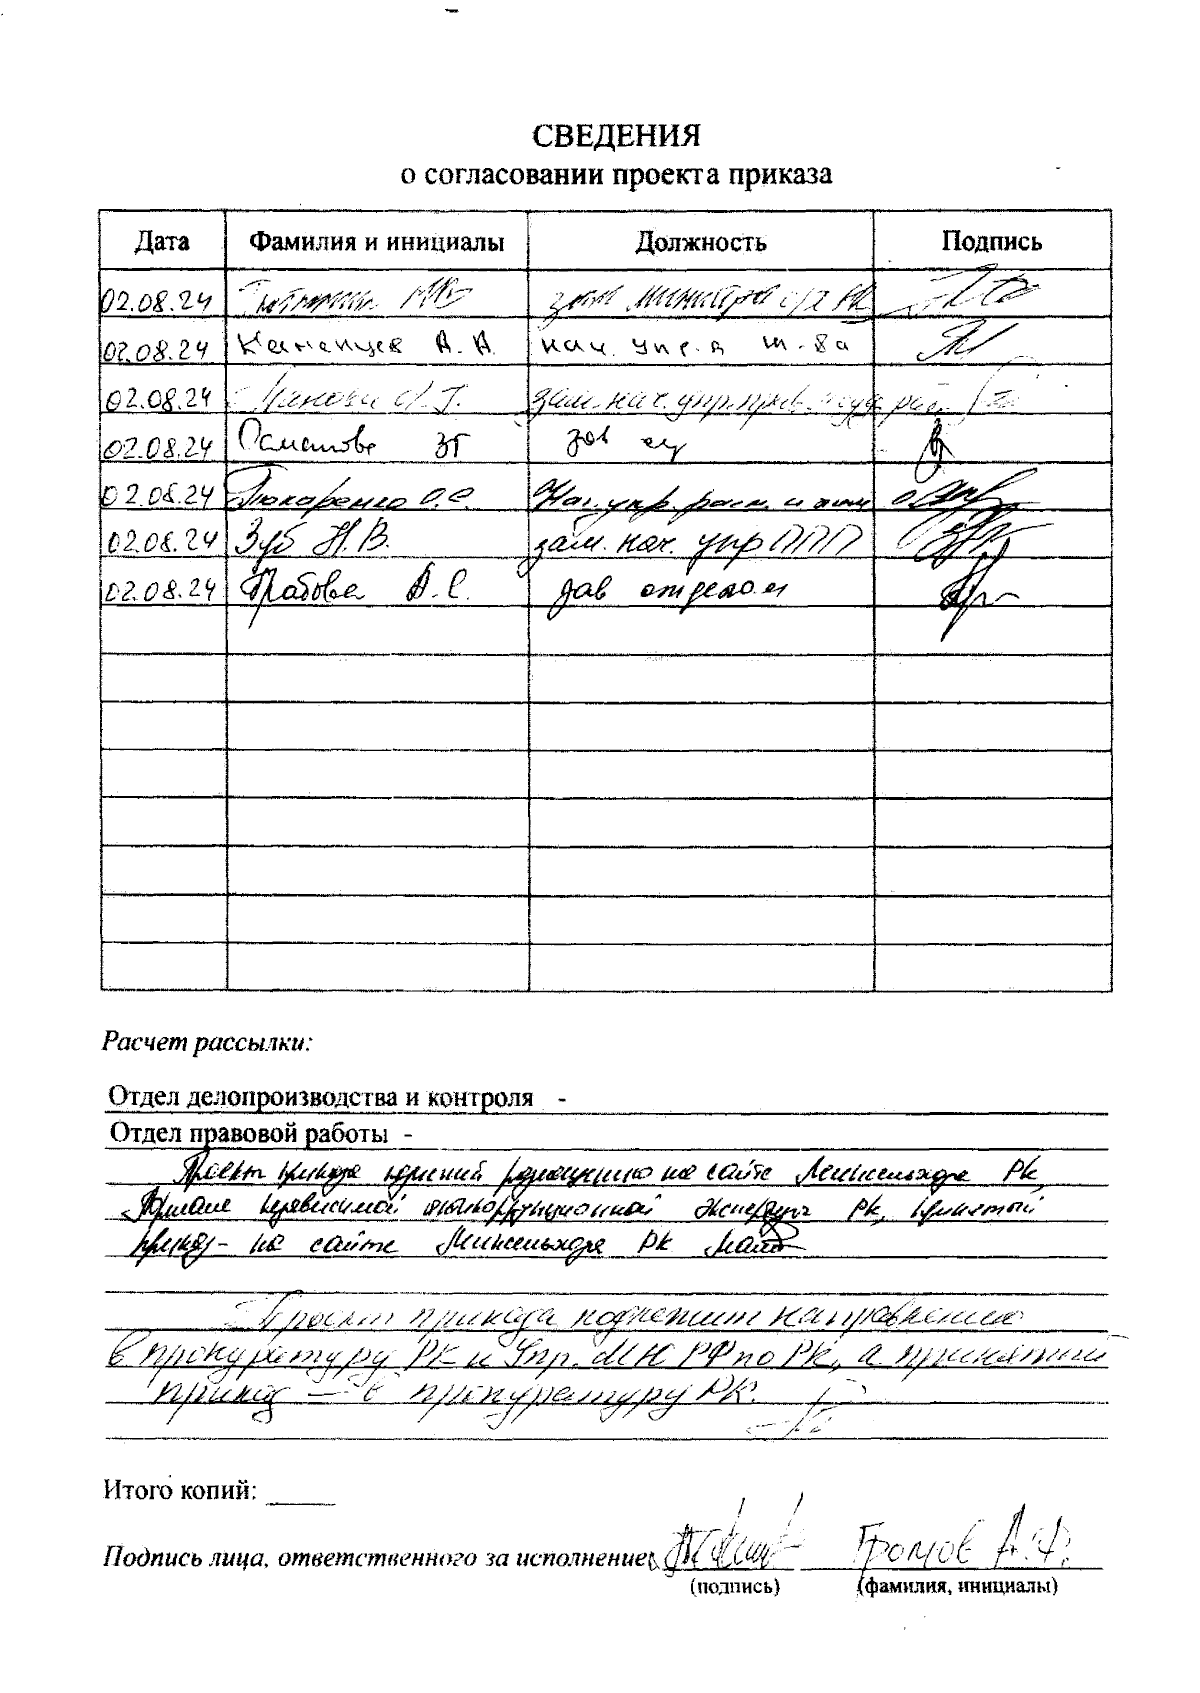 СВЕДЕНИЯ
о согласовании проекта приказа
Дата Фамилия и инициалы Должность Подпись
02.08.24 зам министра с/х РК
02.08.24 А. А. нач. упр.
02.08.24 зам. нач. упр.
02.08.24 Османова ЗГ зав
02.08.24 О.С. Нач. упр. раст. и
02.08.24 Зуб Н.В. зам. нач. упр ППП
02.08.24 А.С. зав отделом
Расчет рассылки:
Отдел делопроизводства и контроля -
Отдел правовой работы -
Проект приказа на сайте Минсельхоза РК,
независимой антикоррупционной РК, принятый
приказ - на сайте Минсельхоза РК
Проект приказа подлежит направлению
в прокуратуру РК и Упр. МЮ РФ по РК, а принятый
приказ — в прокуратуру РК.
Итого копий:
Подпись лица, ответственного за исполнение: Громов А.Ф.
(подпись) (фамилия, инициалы)